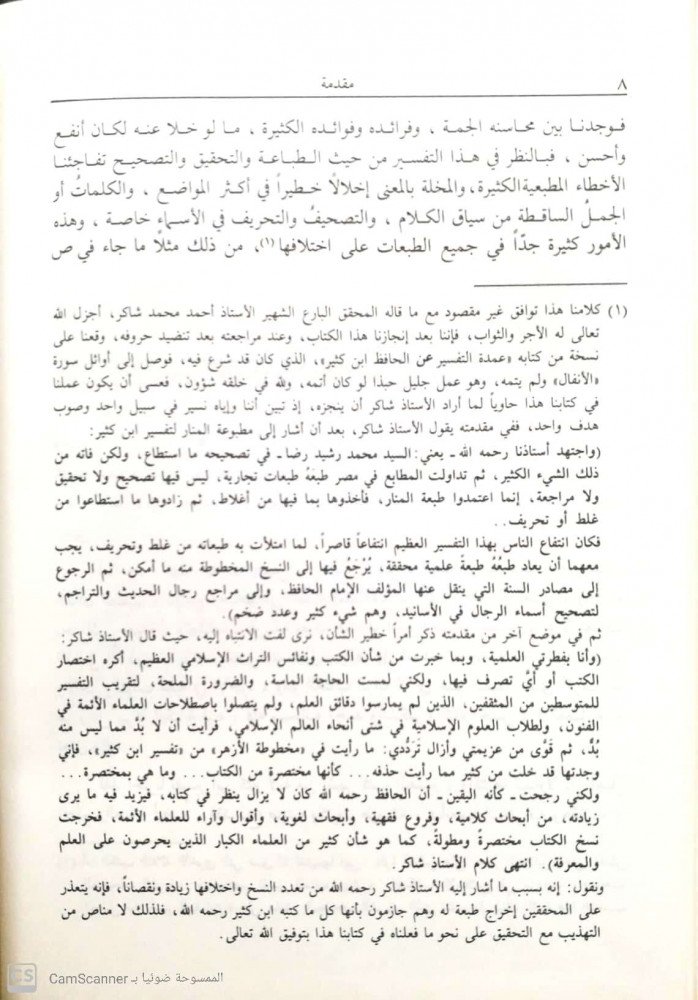 ٨
مقدمة
فوجدنا بين محاسنه الجمة ، وفرائده وفوائده الكثيرة ، ما لو خلا عنه لكان أنفع
وأحسن ، فبالنظر في هذا التفسير من حيث الطباعة والتحقيق والتصحيح تفاجئنا
الأخطاء المطبعية الكثيرة، والمخلة بالمعنى إخلالًا خطيراً في أكثر المواضع ، والكلماتُ أو
الجملُ الساقطة من سياق الكلام ، والتصحيفُ والتحريف في الأسماء خاصة ، وهذه
الأمور كثيرة جدّاً في جميع الطبعات على اختلافها(١)، من ذلك مثلًا ما جاء في ص
(١) كلامنا هذا توافق غير مقصود مع ما قاله المحقق البارع الشهير الأستاذ أحمد محمد شاكر، أجزل الله
تعالى له الأجر والثواب، فإننا بعد إنجازنا هذا الكتاب، وعند مراجعته بعد تنضيد حروفه، وقعنا على
نسخة من كتابه «عمدة التفسير عن الحافظ ابن كثير»، الذي كان قد شرع فيه، فوصل إلى أوائل سورة
«الأنفال» ولم يتمه، وهو عمل جليل حبذا لو كان أتمه، ولله في خلقه شؤون، فعسى أن يكون عملنا
في كتابنا هذا حاوياً لما أراد الأستاذ شاكر أن ينجزه، إذ تبين أننا وإياه نسير في سبيل واحد وصوب
هدف واحد، ففي مقدمته يقول الأستاذ شاكر، بعد أن أشار إلى مطبوعة المنار لتفسير ابن كثير:
(واجتهد أستاذنا رحمه الله ـ يعني: السيد محمد رشيد رضا ـ في تصحيحه ما استطاع، ولكن فاته من
ذلك الشيء الكثير، ثم تداولت المطابع في مصر طبعَهُ طبعات تجارية، ليس فيها تصحيح ولا تحقيق
ولا مراجعة، إنما اعتمدوا طبعة المنار، فأخذوها بما فيها من أغلاط، ثم زادوها ما استطاعوا من
غلط أو تحريف..
فكان انتفاع الناس بهذا التفسير العظيم انتفاعاً قاصراً، لما امتلأت به طبعاته من غلط وتحريف، يجب
معهما أن يعاد طبعُهُ طبعةً علمية محققة، يُرْجَعُ فيها إلى النسخ المخطوطة منه ما أمكن، ثم الرجوع
إلى مصادر السنة التي ينقل عنها المؤلف الإمام الحافظ، وإلى مراجع رجال الحديث والتراجم،
لتصحيح أسماء الرجال في الأسانيد، وهم شيء كثير وعدد ضخم).
ثم في موضع آخر من مقدمته ذكر أمراً خطير الشأن، نرى لفت الانتباه إليه، حيث قال الأستاذ شاكر:
(وأنا بفطرتي العلمية، وبما خبرت من شأن الكتب ونفائس التراث الإسلامي العظيم، أكره اختصار
الكتب أو أيَّ تصرف فيها، ولكني لمست الحاجة الماسة، والضرورة الملحة، لتقريب التفسير
للمتوسطين من المثقفين، الذين لم يمارسوا دقائق العلم، ولم يتصلوا باصطلاحات العلماء الأئمة في
الفنون، ولطلاب العلوم الإسلامية في شتى أنحاء العالم الإسلامي، فرأيت أن لا بُدَّ مما ليس منه
بُدٌّ، ثم قَوَّى من عزيمتي وأزال تَرَدُّدي: ما رأيت في «مخطوطة الأزهر» من «تفسير ابن كثير»، فإني
وجدتها قد خلت من كثير مما رأيت حذفه... كأنها مختصرة من الكتاب... وما هي بمختصرة...
ولكني رجحت ـ كأنه اليقين ـ أن الحافظ رحمه الله كان لا يزال ينظر في كتابه، فيزيد فيه ما يرى
زيادته، من أبحاث كلامية، وفروع فقهية، وأبحاث لغوية، وأقوال وآراء للعلماء الأئمة، فخرجت
نسخ الكتاب مختصرةً ومطولةً، كما هو شأن كثير من العلماء الكبار الذين يحرصون على العلم
والمعرفة). انتهى كلام الأستاذ شاكر.
ونقول: إنه بسبب ما أشار إليه الأستاذ شاكر رحمه الله من تعدد النسخ واختلافها زيادة ونقصاناً، فإنه يتعذر
على المحققين إخراج طبعة له وهم جازمون بأنها كل ما كتبه ابن كثير رحمه الله، فلذلك لا مناص من
التهذيب مع التحقيق على نحو ما فعلناه في كتابنا هذا بتوفيق الله تعالى.
CS
الممسوحة ضوئيا بـ CamScanner